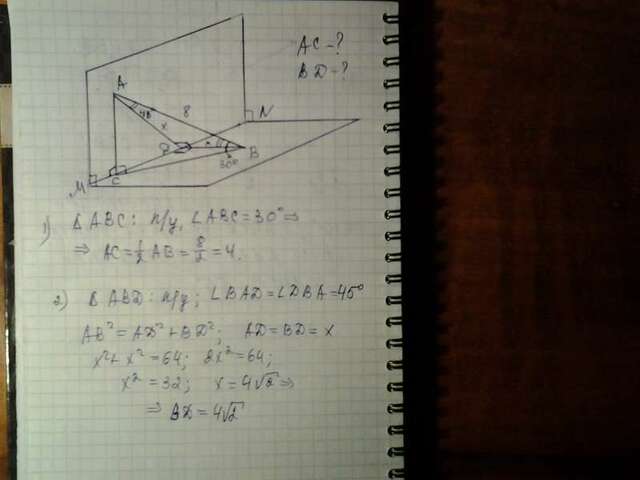 AC-?
BD-?
A
8
45°
x
D
x
45°
B
30°
N
M
C
1) ΔABC: п/у, ∠ABC=30°⇒
⇒ AC=1/2 AB=8/2=4.
2) ΔABD: п/у; ∠BAD=∠DBA=45°
AB²=AD²+BD²; AD=BD=x
x²+x²=64; 2x²=64;
x²=32; x=4√2⇒
⇒ BD=4√2